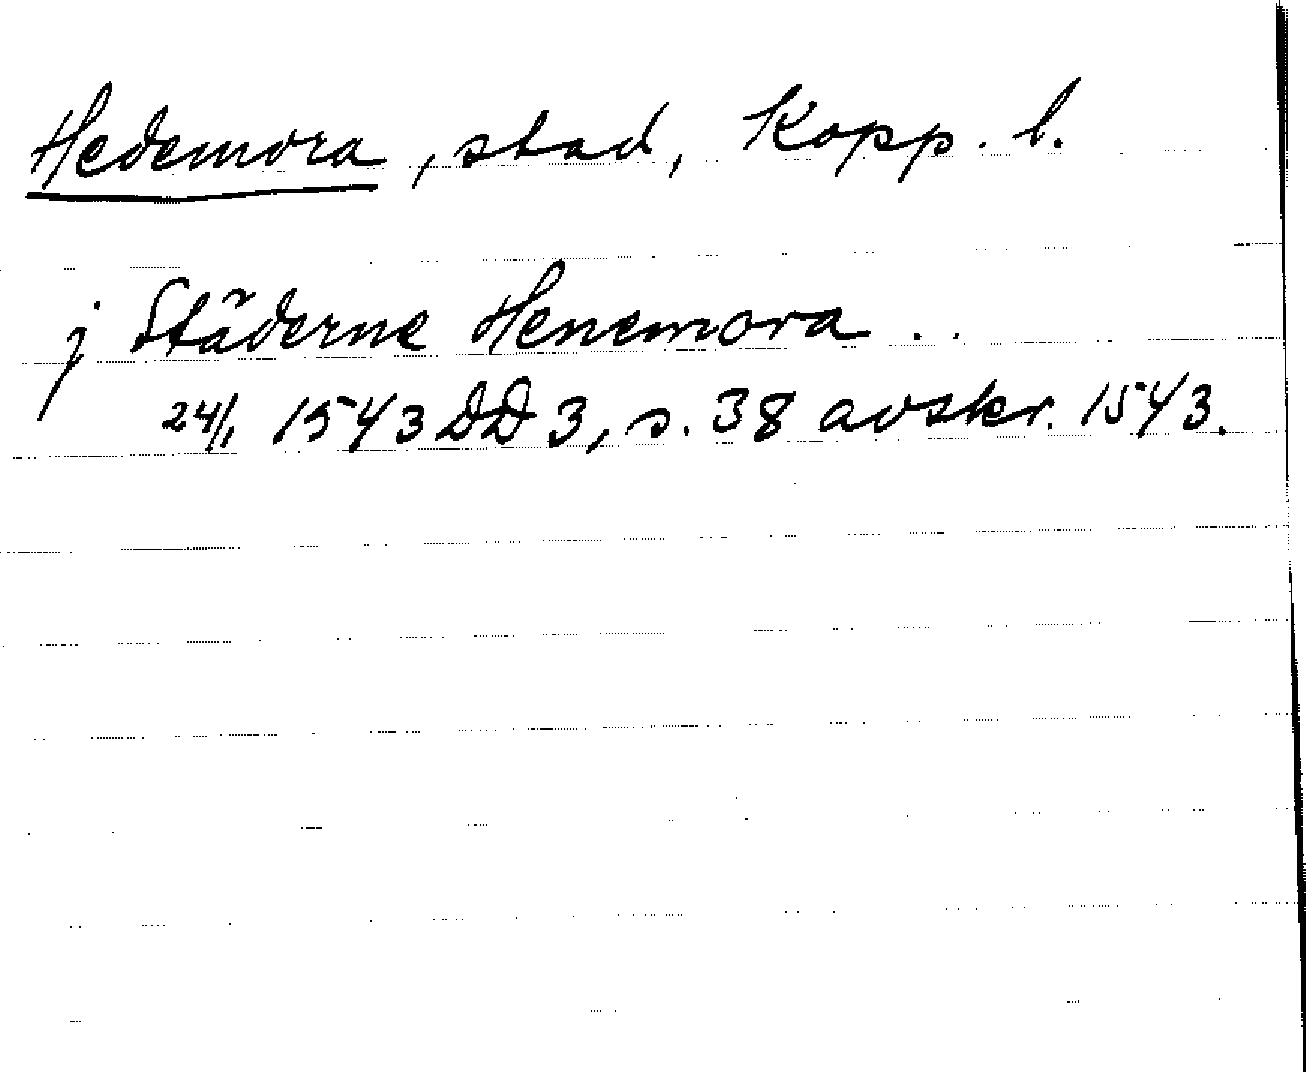 Hedemora, stad, Kopp. l.
j Städerne Henemora ..
24/1 1543 DD 3, s. 38 avskr. 1543.